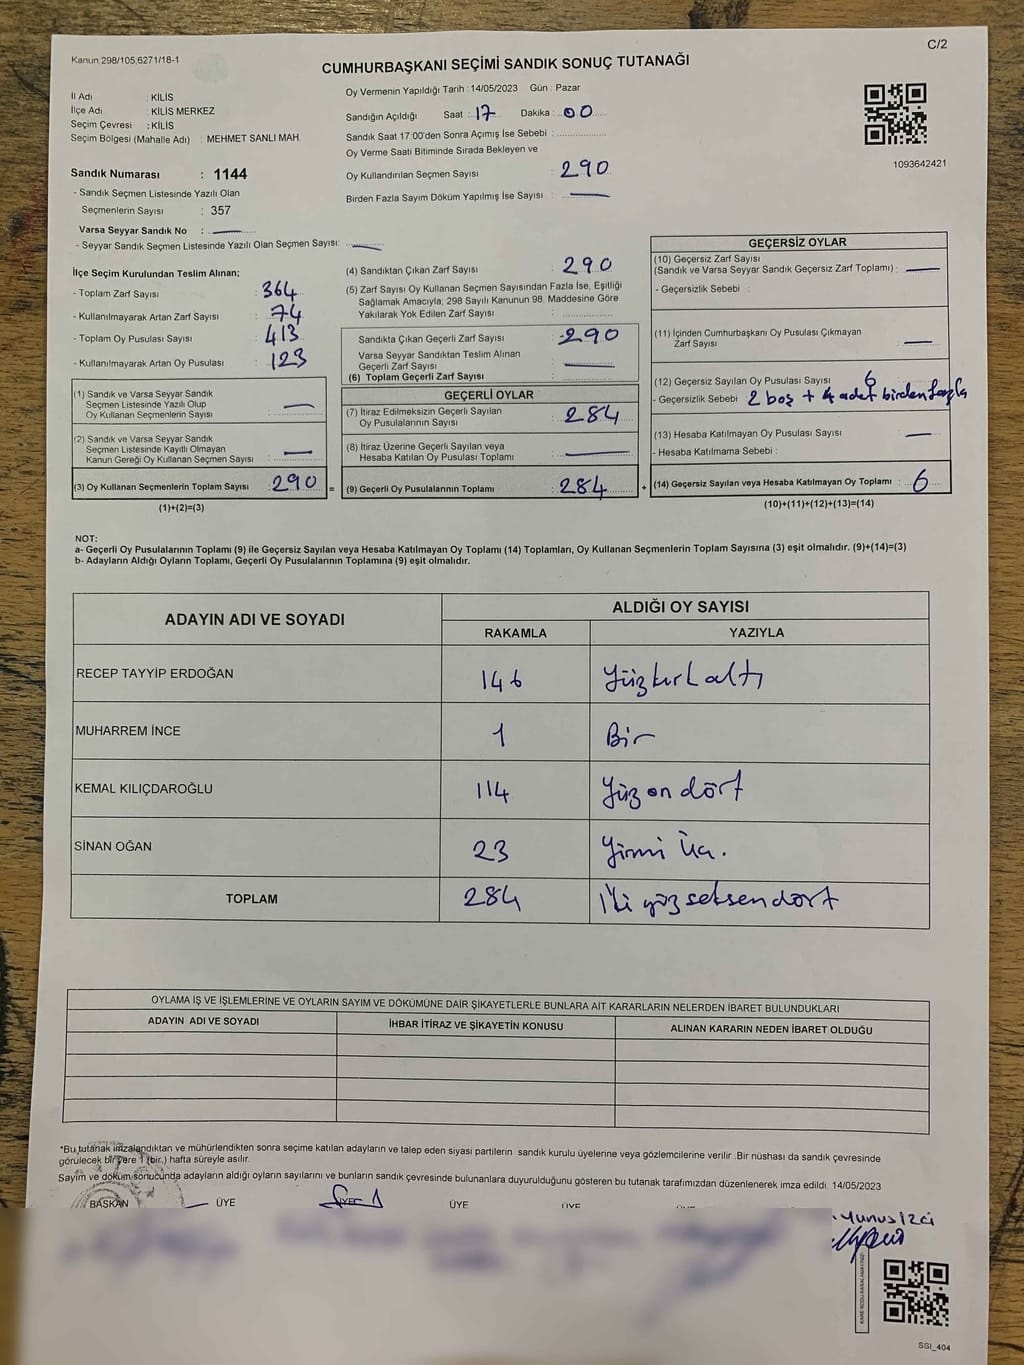 Kanun 298/105;6271/18-1
C/2
CUMHURBAŞKANI SEÇİMİ SANDIK SONUÇ TUTANAĞI
İl Adı : KİLİS
İlçe Adı : KİLİS MERKEZ
Seçim Çevresi : KİLİS
Seçim Bölgesi (Mahalle Adı) : MEHMET SANLI MAH.
Oy Vermenin Yapıldığı Tarih : 14/05/2023 Gün : Pazar
Sandığın Açıldığı Saat : 17 Dakika : 00
Sandık Saat 17:00'den Sonra Açımış İse Sebebi :
Oy Verme Saati Bitiminde Sırada Bekleyen ve
Oy Kullandırılan Seçmen Sayısı : 290
Birden Fazla Sayım Döküm Yapılmış İse Sayısı : —
1093642421
Sandık Numarası : 1144
- Sandık Seçmen Listesinde Yazılı Olan
Seçmenlerin Sayısı : 357
Varsa Seyyar Sandık No : —
- Seyyar Sandık Seçmen Listesinde Yazılı Olan Seçmen Sayısı: —
İlçe Seçim Kurulundan Teslim Alınan;
- Toplam Zarf Sayısı : 364
- Kullanılmayarak Artan Zarf Sayısı : 74
- Toplam Oy Pusulası Sayısı : 413
- Kullanılmayarak Artan Oy Pusulası : 123
(1) Sandık ve Varsa Seyyar Sandık
Seçmen Listesinde Yazılı Olup
Oy Kullanan Seçmenlerin Sayısı : —
(2) Sandık ve Varsa Seyyar Sandık
Seçmen Listesinde Kayıtlı Olmayan
Kanun Gereği Oy Kullanan Seçmen Sayısı : —
(3) Oy Kullanan Seçmenlerin Toplam Sayısı : 290 =
(1)+(2)=(3)
(4) Sandıktan Çıkan Zarf Sayısı : 290
(5) Zarf Sayısı Oy Kullanan Seçmen Sayısından Fazla İse, Eşitliği
Sağlamak Amacıyla; 298 Sayılı Kanunun 98. Maddesine Göre
Yakılarak Yok Edilen Zarf Sayısı :
Sandıkta Çıkan Geçerli Zarf Sayısı : 290
Varsa Seyyar Sandıktan Teslim Alınan
Geçerli Zarf Sayısı : —
(6) Toplam Geçerli Zarf Sayısı :
GEÇERLİ OYLAR
(7) İtiraz Edilmeksizin Geçerli Sayılan
Oy Pusulalarının Sayısı : 284
(8) İtiraz Üzerine Geçerli Sayılan veya
Hesaba Katılan Oy Pusulası Toplamı : —
(9) Geçerli Oy Pusulalarının Toplamı : 284 +
GEÇERSİZ OYLAR
(10) Geçersiz Zarf Sayısı
(Sandık ve Varsa Seyyar Sandık Geçersiz Zarf Toplamı) : —
- Geçersizlik Sebebi :
(11) İçinden Cumhurbaşkanı Oy Pusulası Çıkmayan
Zarf Sayısı : —
(12) Geçersiz Sayılan Oy Pusulası Sayısı : 6
- Geçersizlik Sebebi 2 boş + 4 adet birden fazla
(13) Hesaba Katılmayan Oy Pusulası Sayısı : —
- Hesaba Katılmama Sebebi :
(14) Geçersiz Sayılan veya Hesaba Katılmayan Oy Toplamı : 6
(10)+(11)+(12)+(13)=(14)
NOT:
a- Geçerli Oy Pusulalarının Toplamı (9) ile Geçersiz Sayılan veya Hesaba Katılmayan Oy Toplamı (14) Toplamları, Oy Kullanan Seçmenlerin Toplam Sayısına (3) eşit olmalıdır. (9)+(14)=(3)
b- Adayların Aldığı Oyların Toplamı, Geçerli Oy Pusulalarının Toplamına (9) eşit olmalıdır.
ADAYIN ADI VE SOYADI
ALDIĞI OY SAYISI
RAKAMLA YAZIYLA
RECEP TAYYİP ERDOĞAN 146 Yüzkırkaltı
MUHARREM İNCE 1 Bir
KEMAL KILIÇDAROĞLU 114 Yüz on dört
SİNAN OĞAN 23 Yirmi Üç.
TOPLAM 284 İki yüz seksendört
OYLAMA İŞ VE İŞLEMLERİNE VE OYLARIN SAYIM VE DÖKÜMÜNE DAİR ŞİKAYETLERLE BUNLARA AİT KARARLARIN NELERDEN İBARET BULUNDUKLARI
ADAYIN ADI VE SOYADI İHBAR İTİRAZ VE ŞİKAYETİN KONUSU ALINAN KARARIN NEDEN İBARET OLDUĞU
*Bu tutanak imzalandıktan ve mühürlendikten sonra seçime katılan adayların ve talep eden siyasi partilerin sandık kurulu üyelerine veya gözlemcilerine verilir. Bir nüshası da sandık çevresinde
görülecek bir yere 1 (bir) hafta süreyle asılır.
Sayım ve döküm sonucunda adayların aldığı oyların sayılarını ve bunların sandık çevresinde bulunanlara duyurulduğunu gösteren bu tutanak tarafımızdan düzenlenerek imza edildi. 14/05/2023
BAŞKAN ÜYE ÜYE ÜYE
Yunus İzci
SGI_404